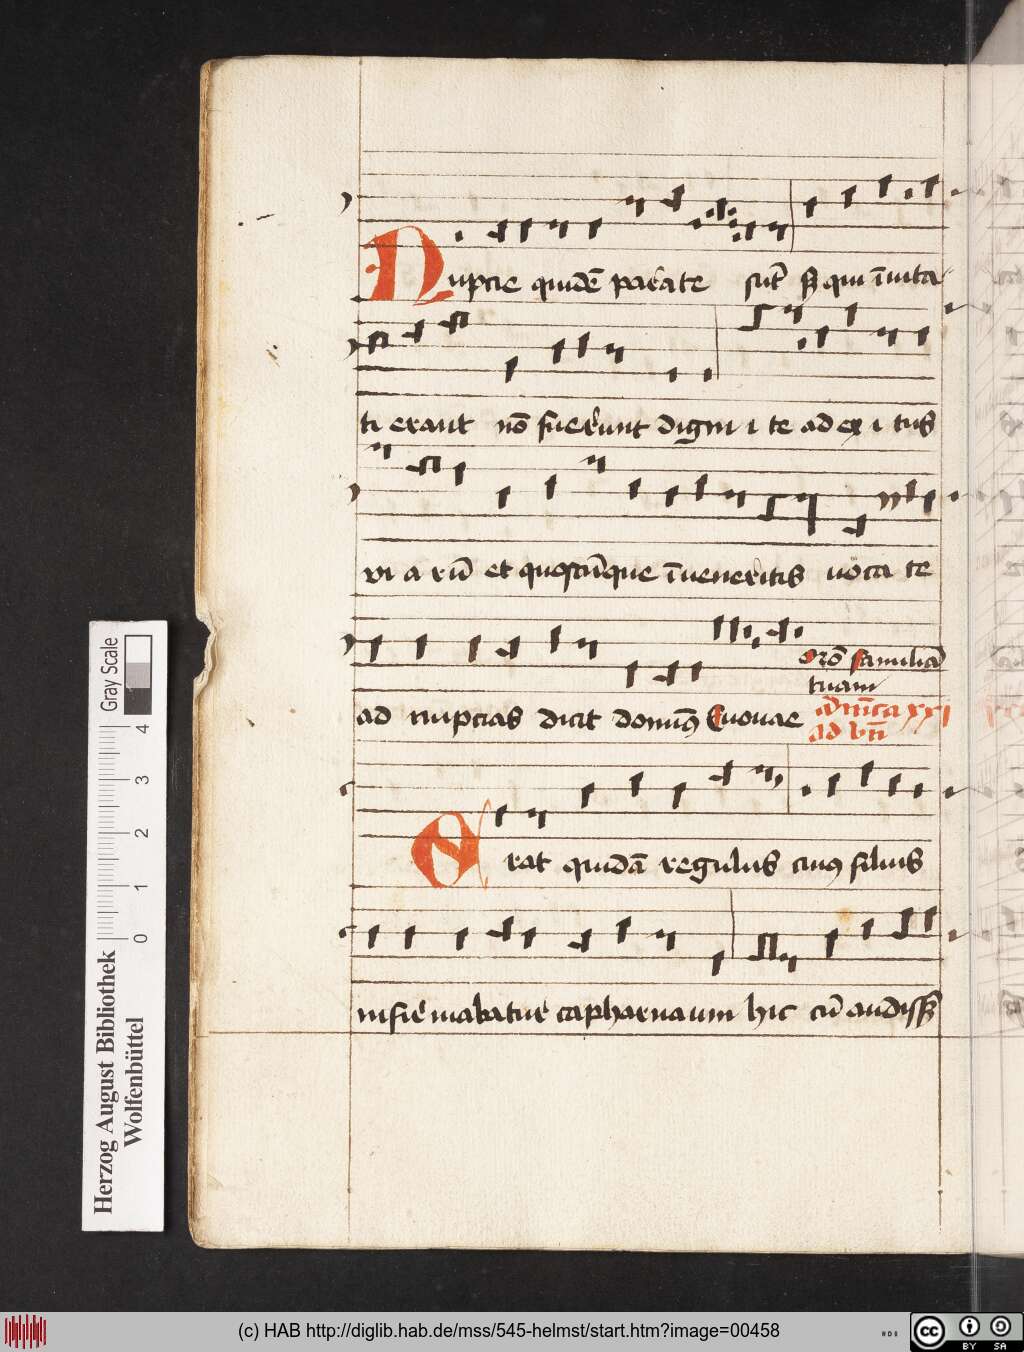 Nupcie quidē parate sūt s̄ qui īuita
ti erant nō fuerunt digni i te ad ex i tus
vi a rū et quoscūque īueneritis uoca te
ad nupcias dicit domin9 Euouae
Orō familiā
tuam
dn̄ica xxi
ad bn̄
Erat quidā regulus cui9 filius
infirmabatur capharnaum hic cū audiss
Gray Scale
4
3
2
1
0
Herzog August Bibliothek
Wolfenbüttel
(c) HAB http://diglib.hab.de/mss/545-helmst/start.htm?image=00458
cc
BY SA